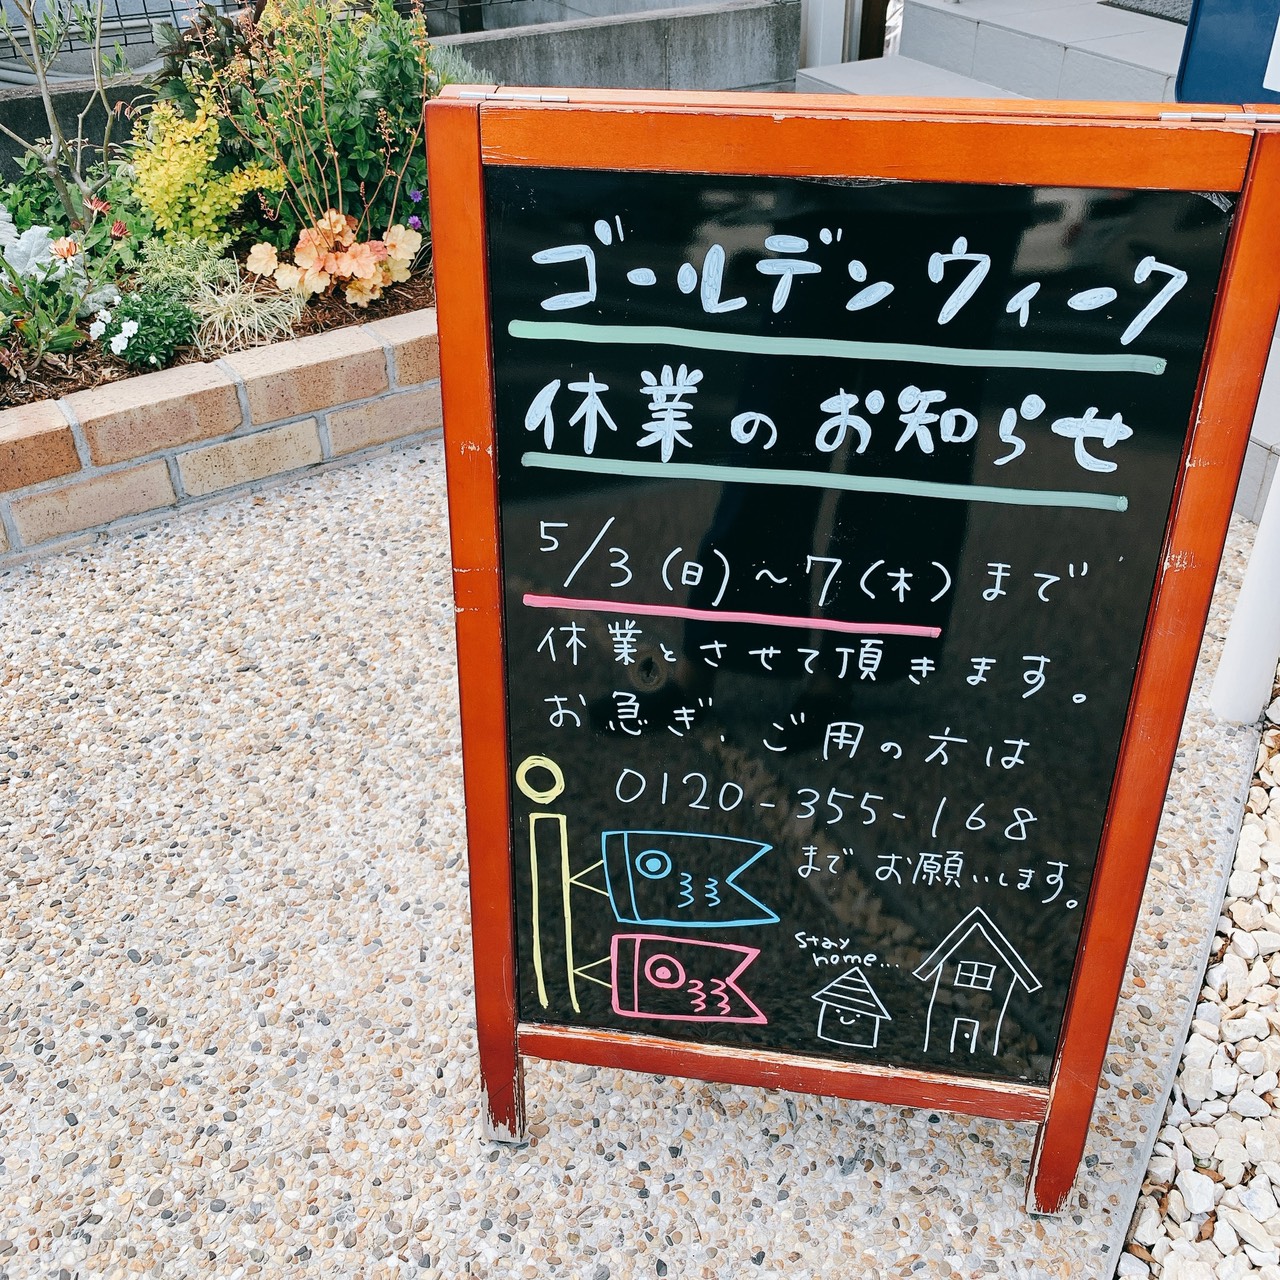 ゴールデンウィーク
休業のお知らせ
5/3(日)~7(木)まで
休業とさせて頂きます。
お急ぎ、ご用の方は
0120-355-168
までお願いします。
stay
home...